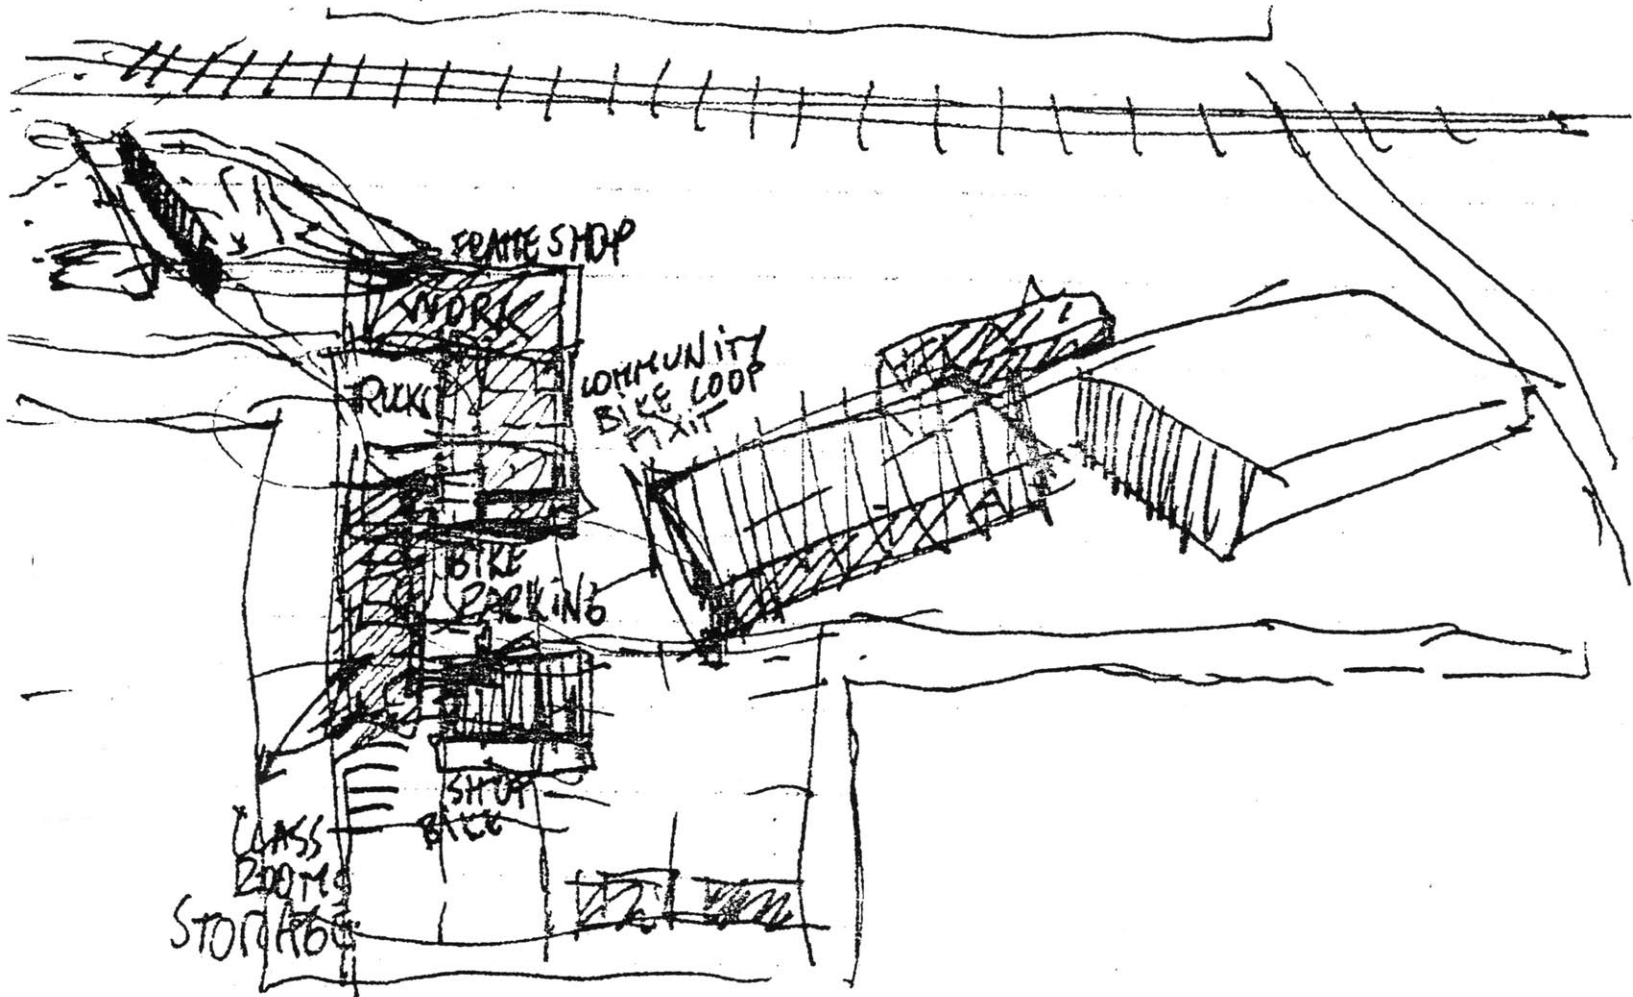 FRAME SHOP
WORK
COMMUNITY
BIKE LOOP
FIXIT
BIKE
PARKING
SHOP
BIKE
CLASS
ROOMS
STORAGE